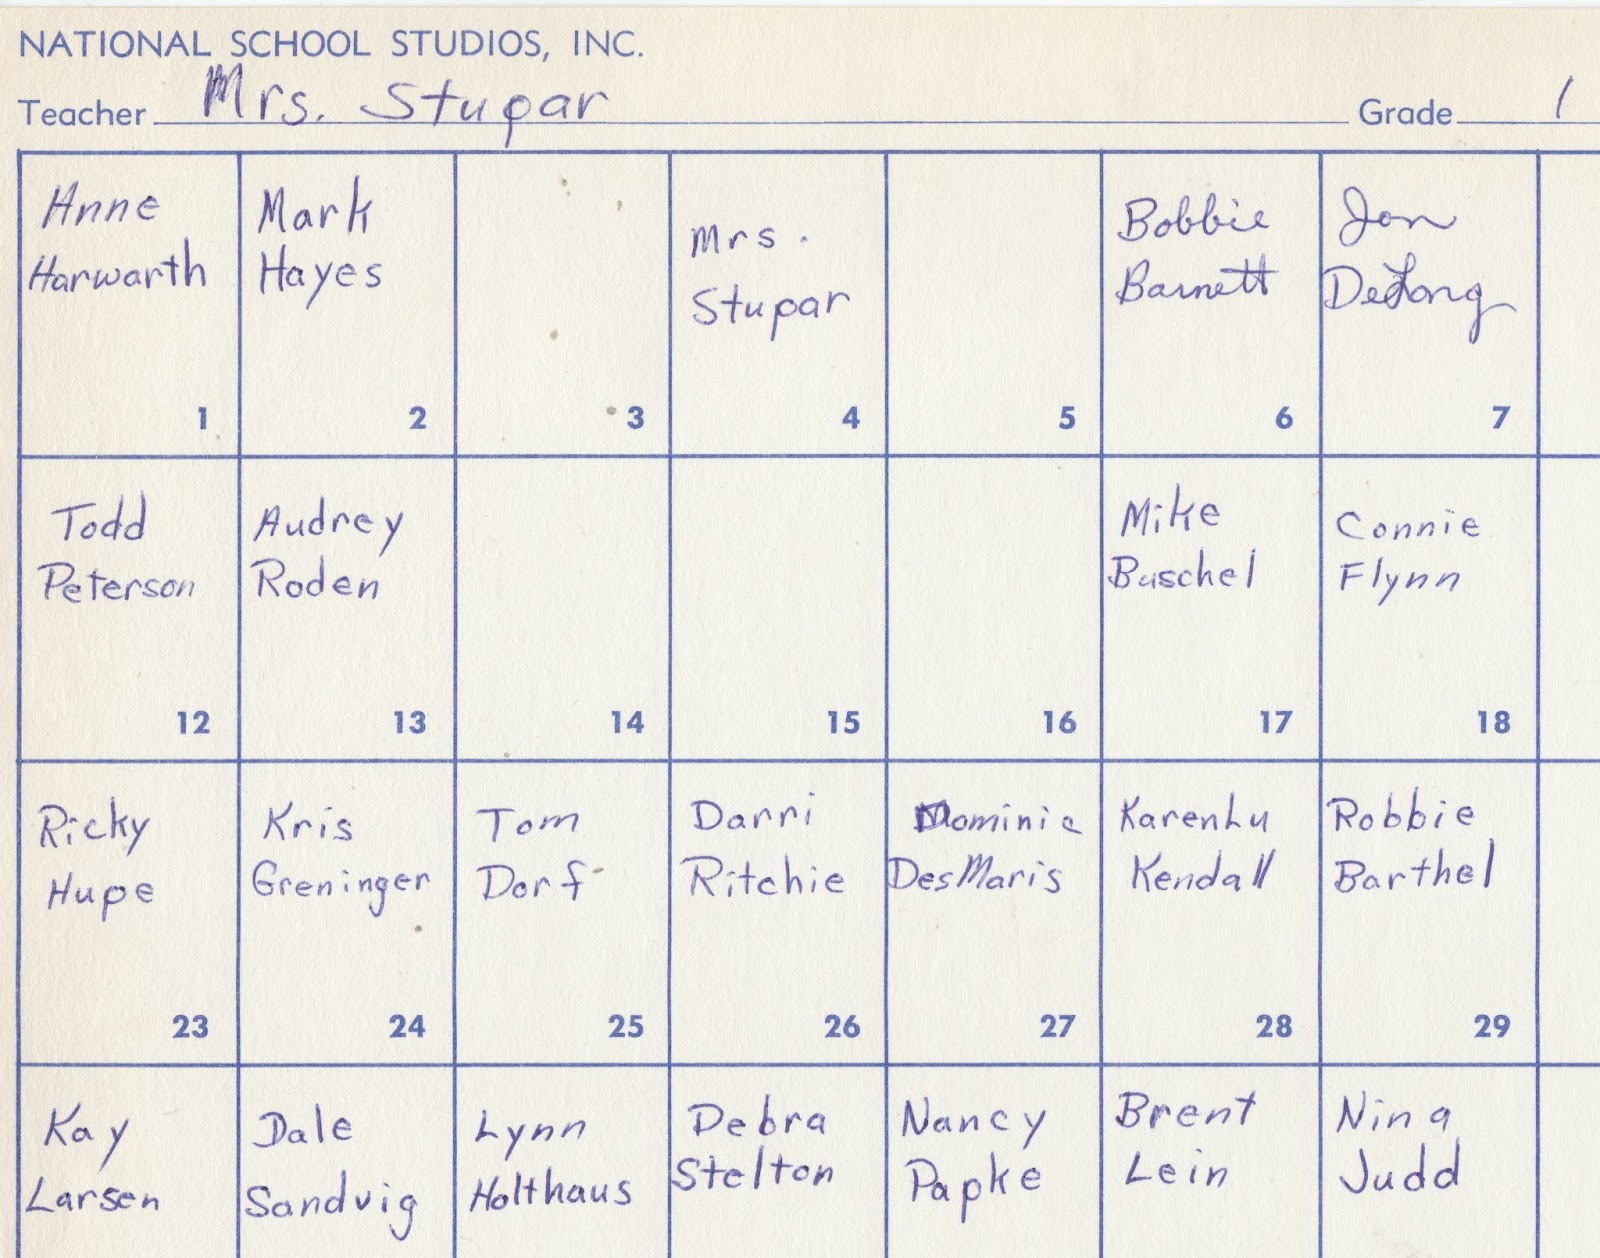 NATIONAL SCHOOL STUDIOS, INC.
Teacher Mrs. Stupar Grade 1
Anne
Harwarth
1
Mark
Hayes
2
3
Mrs.
Stupar
4
5
Bobbie
Barnett
6
Jon
DeLong
7
Todd
Peterson
12
Audrey
Roden
13
14
15
16
Mike
Buschel
17
Connie
Flynn
18
Ricky
Hupe
23
Kris
Greninger
24
Tom
Dorf
25
Darri
Ritchie
26
Dominic
DesMaris
27
KarenLu
Kendall
28
Robbie
Barthel
29
Kay
Larsen
Dale
Sandvig
Lynn
Holthaus
Debra
Stelton
Nancy
Papke
Brent
Lein
Nina
Judd